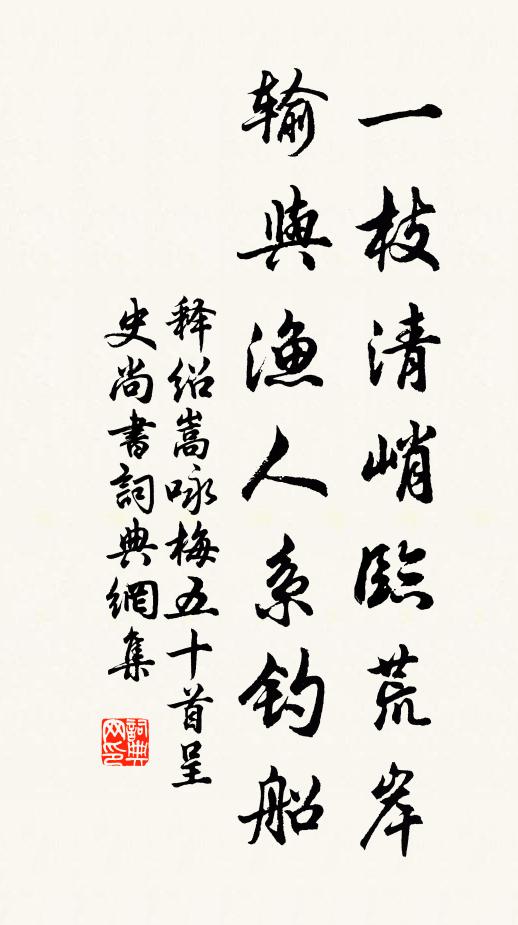 一枝清峭臨荒岸
輸與漁人系釣船
释绍嵩咏梅五十首呈
史尚書詞典網集
詞典
网印